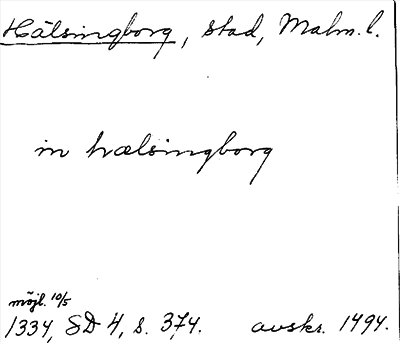 Hälsingborg, stad, Malm. l.
in hælsingborg
möjl. 10/5
1334, SD 4, s. 374. avskr. 1494.